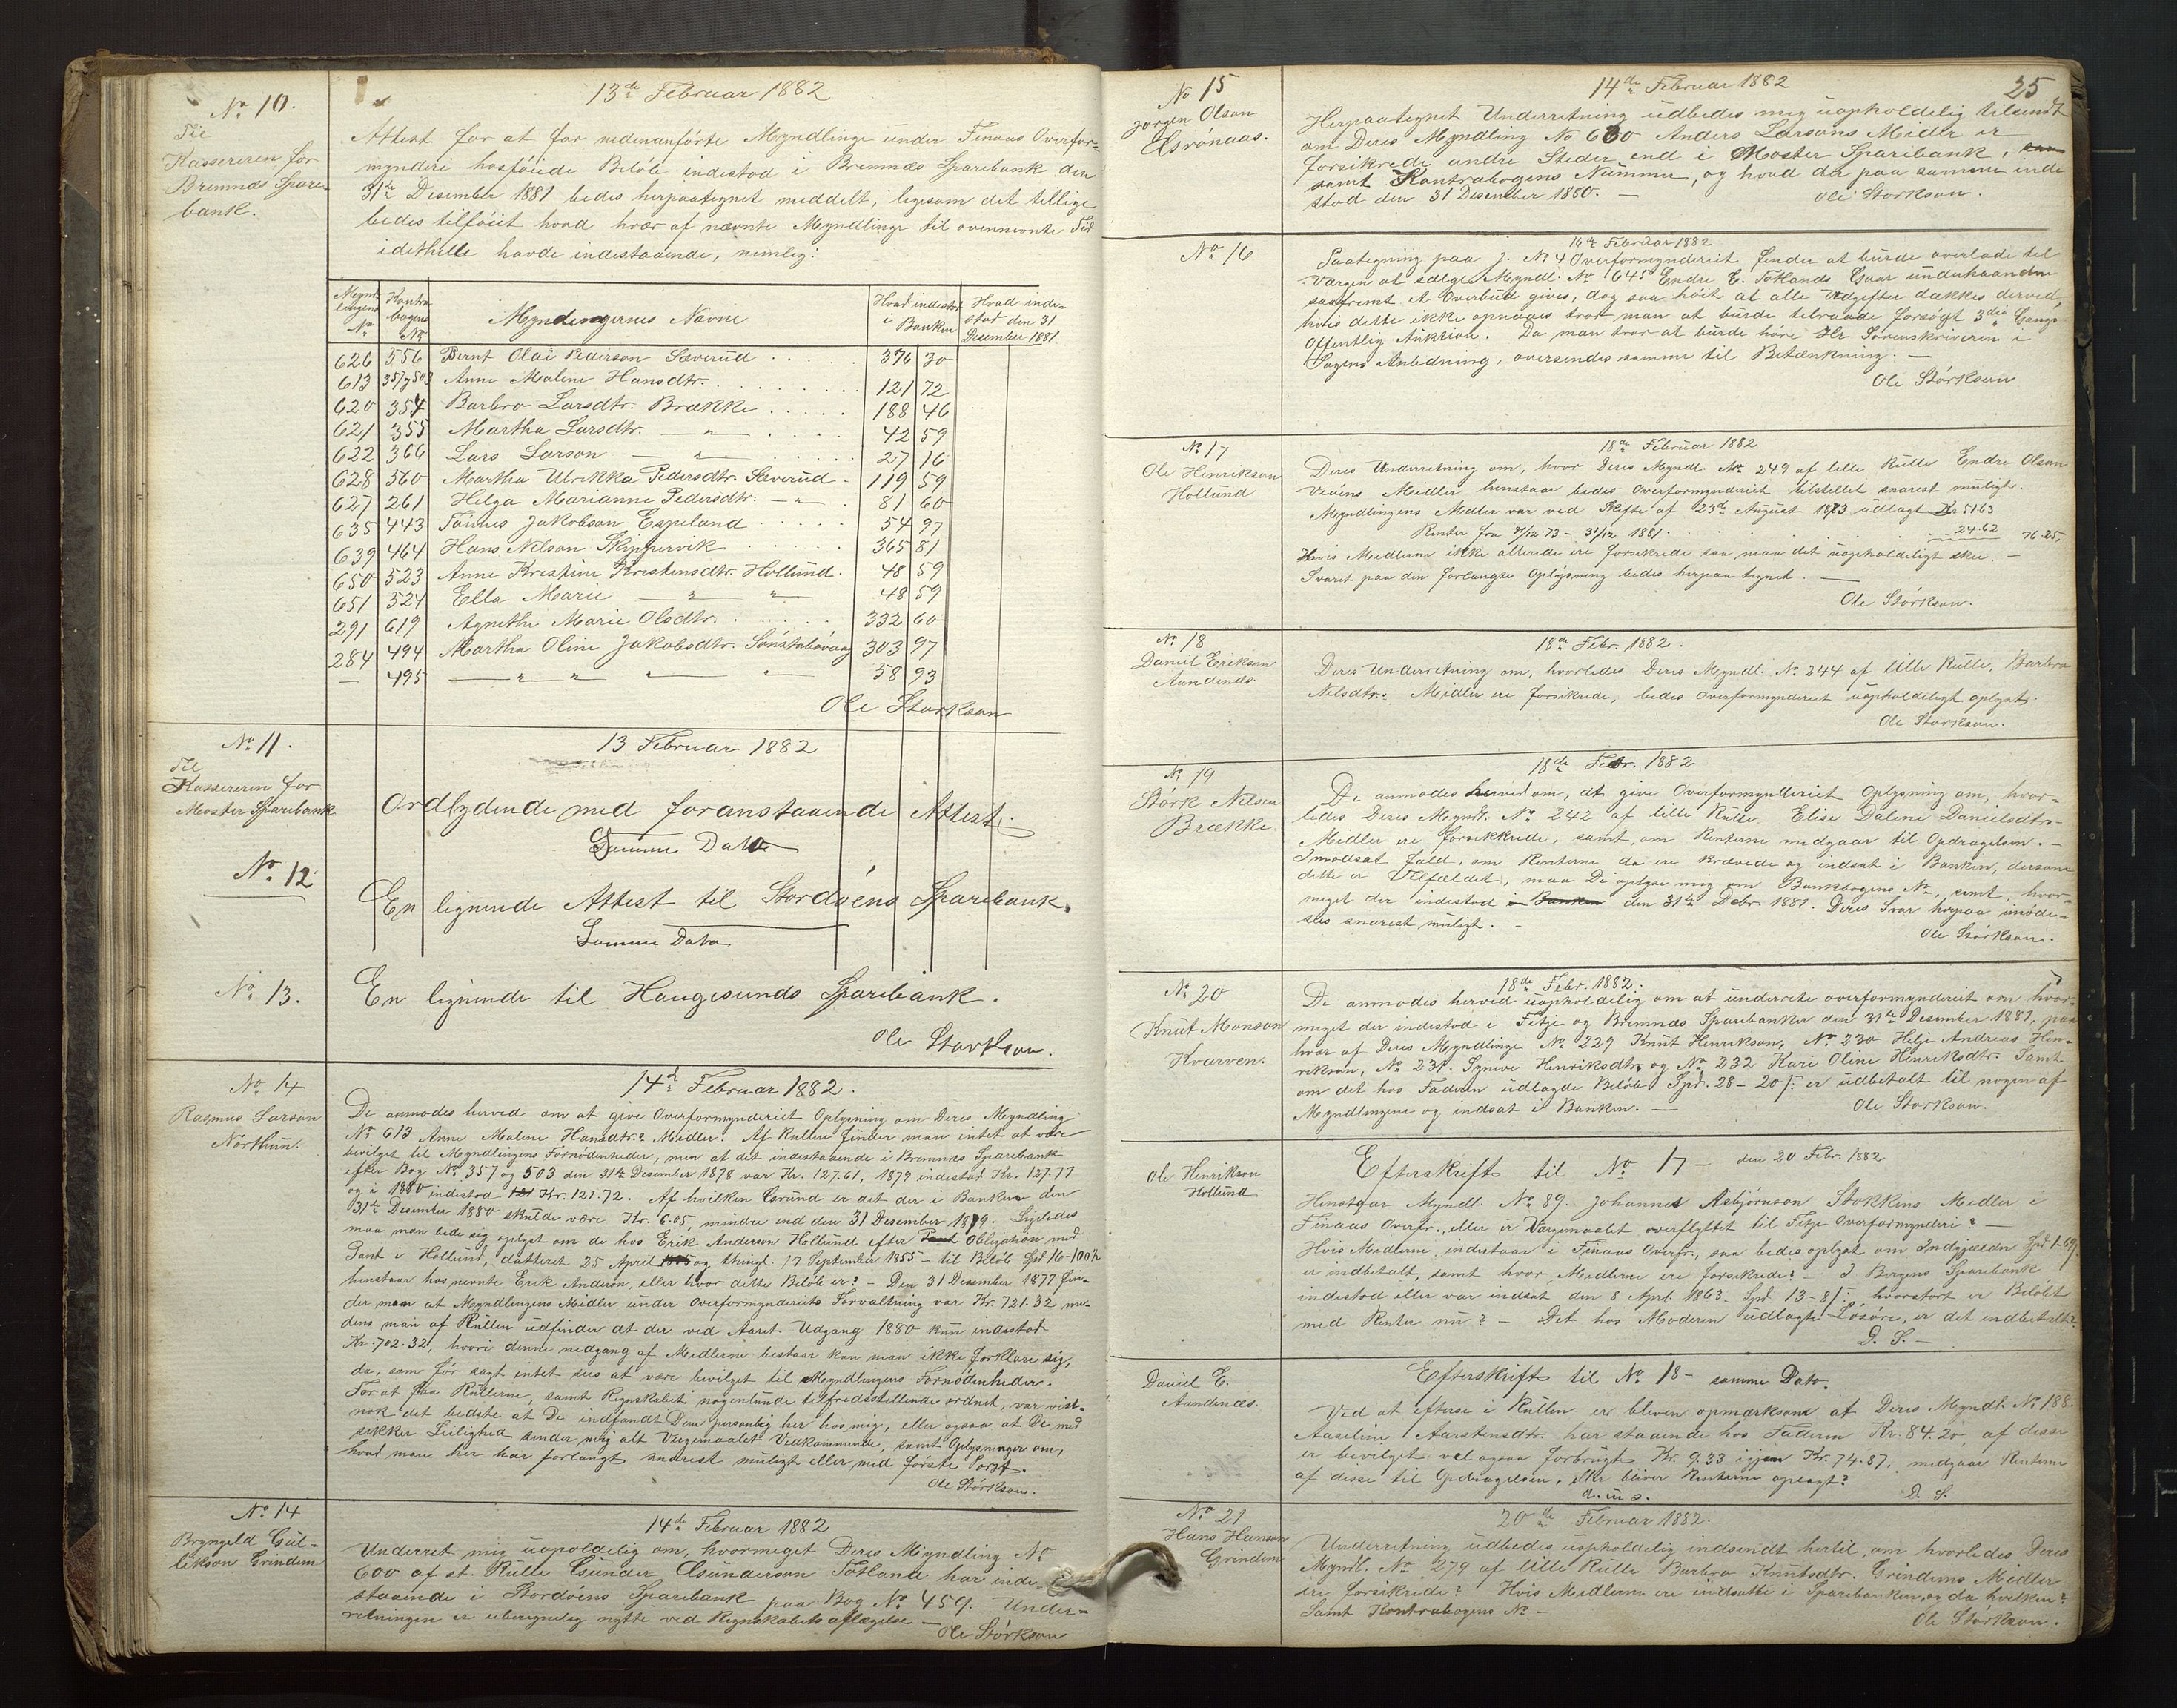 No 10.
Til
Kassereren for
Bremnæs Spare-
bank.
13de Februar 1882
Attest for at for nedenanførte Myndlinge under Finaas Overfor-
mynderi hosføiede Beløb indestod i Bremnæs Sparebank den
31te Desember 1881 bedes herpaategnet meddelt, ligesom det tillige
bedes tilføiet hvad hvær af nævnte Myndlinge til ovennevnte Tid
idethele havde indestaaende, nemlig:
Mynd-lingens No | Kontra-bogens No | Myndlingernes Navne | Hvad indestod i Banken | Hvad inde-stod den 31 Desember 1881
626 556 Bernt Olai Pederson Sæverud . . . . 376 30
613 357 og 503 Anne Malene Hansdtr. . . . . 121 72
620 354 Barbro Larsdtr. Brække . . . . . 188 46
621 355 Martha Larsdtr. — " — . . . . 42 59
622 366 Lars Larson — " — . . . . 27 16
628 560 Martha Ulrikka Pedersdtr. Sæverud . 119 59
627 261 Helga Marianne Pedersdtr. — " — . 81 60
635 443 Tønnes Jakobson Espeland . . . . . 54 97
639 464 Hans Nilson Skippervik . . . . . 365 81
650 523 Anne Kristine Kristensdtr. Hollund . 48 59
651 524 Ella Marie — " — " — 48 59
291 619 Agnethe Marie Olsdtr. . . . . . 332 60
284 494 Martha Oline Jakobsdtr. Sønstabøvaag 303 97
— 495 — " — " — " — " 58 93
Ole Størkson
No 11.
Til
Kassereren for
Moster Sparebank
13 Februar 1882
Ordlydende med foranstaaende Attest.
Samme Dato
No 12
En lignende Attest til Stordøens Sparebank.
Samme Dato
No 13.
En lignende til Haugesunds Sparebank.
Ole Størkson.
No 14
Rasmus Larson
Nörthun.
14de Februar 1882.
De anmodes herved om at give Overformynderiet Oplysning om Deres Myndling
No 613 Anne Malene Hansdtr.s Midler. Af Rullen finder man intet at være
bevilget til Myndlingens Fornødenheder, men at det indestaaende i Bremnæs Sparebank
efter Bog No 357 og 503 den 31te Desember 1878 var Kr. 127.61, 1879 indestod Kr. 127.77
og i 1880 indestod Kr. 121.72. Af hvilken Grund er det der i Banken den
31te Desember 1880 skulde være Kr. 6.05, mindre end den 31 Desember 1879. Ligeledes
maa man bede sig oplyst om de hos Erik Anderson Hollund efter Obligation med
Pant i Hollund, datteret 25 April og thingl. 17 September 1855 – til Beløb Spd 16-100 s
henstaar hos nevnte Erik Anderson, eller hvor dette Beløb er? – Den 31 Desember 1877 fin-
der man at Myndlingens Midler under Overformynderiets Forvaltning var Kr. 721.32 me-
dens man af Rullen udfinder at der ved Aaret Udgang 1880 kun indestod
Kr. 702.32, hvori denne nedgang af Medlerne bestaar kan man ikke forklare sig,
da, som før sagt intet sees at være bevilget til Myndlingens Fornødenheder.
For at faa Rullerne, samt Regnskabet nogenlunde tilfredsstillende ordnet, var vist-
nok det bedste at De indfandt Dem personlig her hos mig, eller ogsaa at De med
sikker Leilighed sender mig alt Værgemaalet Vedkommende, samt Oplysninger om,
hvad man her har forlangt snarest muligt eller med første Post.
Ole Størkson.
No 14
Bryngeld Gul-
likson Grindem
14de Februar 1882
Underret mig uopholdelig om, hvormeget Deres Myndling No
600 af st. Rulle Gunder Gunderson Totland har inde-
staaende i Stordøens Sparebank paa Bog No 459. Under-
retningen er uberegnelig nytte ved Regnskabets aflægelse –
Ole Størkson
25
No 15
Jørgen Olson
Grønaas.
14de Februar 1882
Herpaategnet Underretning udbedes mig uopholdelig tilsendt
om Deres Myndling No 680 Anders Larsons Midler er
forsikrede andre Steder end i Moster Sparebank,
samt Kontrabogens Nummer, og hvad der paa samme inde
stod den 31 Desember 1880. —
Ole Størkson.
No 16
16de Februar 1882
Paategning paa j. No 4 Overformynderiet finder at burde overlade til
Værgen at sælge Myndl. No 645 Endre E. Totlands Gaar underhaanden
saafremt et Overbud gives, dog saa høit at alle Udgifter dækkes derved,
hvis dette ikke opnaaes tror man at burde tilraade forsøgt 3die Gangs
Offentlig Auksion. Da man tror at burde høre Hr Sorenskriveren i
Sagens Anledning, oversendes samme til Betænkning. —
Ole Størkson
No 17
Ole Henrikson
Hollund
18de Februar 1882
Deres Underretning om, hvor Deres Myndl. No 249 af lille Rulle Endre Olson
Vevens Midler henstaar bedes Overformynderiet tilstillet snarest muligt.
Myndlingens Medler var ved Skifte af 23de August 1873 udlagt Kr 51.63
Renter fra 31/12.73 – 31/12 1881 . . . . . 24.62 76.25,
Hvis Medlerne ikke allerede ere forsikrede saa maa det uopholdeligt skee. —
Svaret paa den forlangte Oplysning bedes herpaa tegnet. —
Ole Størkson.
No 18
Daniel Erikson
Aandenæs.
18de Febr. 1882.
Deres Underretning om, hvorledes Deres Myndl. No 244 af lille Rulle, Barbro
Nelsdtr.s Midler ere forsikrede, bedes Overformynderiet uopholdeligt oplyst.
Ole Størkson.
No 19
Størk Nilsen
Brække.
18de Febr. 1882
De anmodes herved om, at give Overformynderiet Oplysning om, hvor-
ledes Deres Myndl. No 242 af lille Rulle Elise Daline Danielsdtrs
Midler ere forsikkrede, samt, om Renterne medgaar til Opdragelsen. –
I modsat fald, om Renterne da ere krævede og indsat i Banken, dersom
dette er Tilfældet, maa De oplyse mig om Bankbogens No, samt, hvor-
meget der indestod i Banken den 31te Debr. 1881. Deres Svar herpaa imøde-
sees snarest muligt. –
Ole Størkson.
No 20
Knut Monson
Kvarven.
18de Febr. 1882.
De anmodes herved uopholdelig om at underrette overformynderiet om hvor-
meget der indestod i Fitje og Bremnæs Sparebanker den 31te Desember 1881, paa
hvær af Deres Myndlinge No 229 Knut Henrikson, No 230 Helje Andreas Hen-
rikson, No 231. Synve Henriksdtr. og No 232 Kari Oline Henriksdtr. Samt
om det hos Faderen udlagde Beløb Spd. 28 – 20 s er udbetalt til nogen af
Myndlingene og indsat i Banken. —
Ole Størkson.
Ole Henrikson
Hollund
Efterskrift til No 17 – den 20 Febr. 1882
Henstaar Myndl. No 89. Johannes Asbjørnson Stokkens Medler i
Finaas Overfr., eller er Værgemaalet overflyttet til Fitje Overformynderi? —
Hvis Medlerne indestaar i Finaas Overfr., saa bedes oplyst om Indgjælden Spd 1-69
er indbetalt, samt hvor Medlerne ere forsikrede? – I Bergens Sparebank
indestod eller var indsat den 8 Apl. 1863 Spd. 13-81 hvorstort er Beløbet
med Renter nu? – Det hos Moderen udlagte Løsøre, er det indbetalt?
D. S. —
Daniel E.
Aandenæs.
Efterskrift til No 18 – samme Dato.
Ved at efterse i Rullen er bleven opmerksom at Deres Myndl. No 188.
Aaseline Aarstensdtr. har staaende hos Faderen Kr. 84.20, af disse
er bevilget vel ogsaa forbrugt Kr. 9.33 igjen Kr. 74.87. medgaar Renterne
af disse til Opdragelsen, eller bliver Renterne oplagt?
D. S.
No 21
Hans Hanson
Grindem
20de Februar 1882.
Underretning udbedes uopholdelig indsendt hertil, om hvorledes Deres
Myndl. No 279 af lille Rulle Barbro Knutsdtr. Grindems Medler
ere forsikrede? Hvis Medlerne ere indsatte i Sparebanken, og da hvilken?
Samt Kontrabogens No –
Ole Størkson.